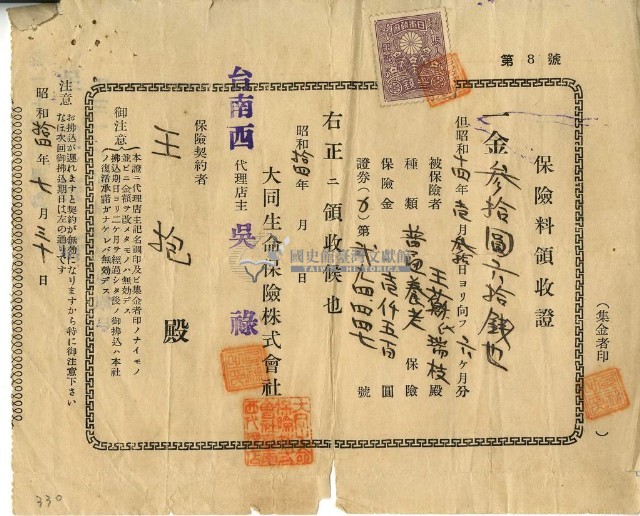 第8號
(集金者印)
保險料領收證
一金參拾圓六拾錢也
但昭和十四年壱月参拾日ヨリ向フ六ケ月分
被保險者 王蔡氏瑞枝殿
種類 普通養老保險
保險金 壹仟五百圓
證券(カ)第 號
右正ニ領收候也
昭和拾四年 月 日
大同生命保險株式會社
台南西代理店主 吳祿
保險契約者
王 殿
御注意
本證ニ代理店主記名調印及ビ集金者印ノナイモノ
並ビニ金額ヲ改メタモノハ無効デス
拂込期日ヨリ二ケ月ヲ經過シタ後ノ御拂込ハ本社
ノ復活承諾ガナケレバ無効デス
注意 お拂込が遲れますと契約が無効になりますから特に御注意下さい
なほ次回御拂込期日は左の通りです
昭和拾四年七月三十日
國史館臺灣文獻館
TAIWAN HISTORICA
330